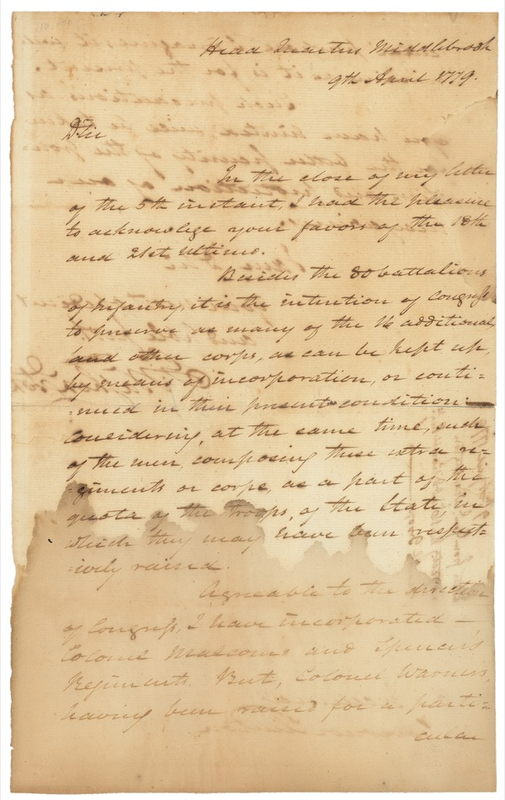 Head Quarters Middlebrook
9th April 1779.
D Sir
In the close of my letter
of the 5th instant, I had the pleasure
to acknowlege your favors of the 18th
and 21st ultimo.
Besides the 80 battalions
of Infantry, it is the intention of Congress
to preserve as many of the 16 additional
and other corps, as can be kept up,
by means of incorporation, or conti-
-nued in their present condition:
considering, at the same time, such
of the men, composing these extra re-
-giments or corps, as a part of the
quota of the troops, of the State, in
which they may have been respect-
-ively raised.
Agreeable to the direction
of Congress, I have incorporated
Colonel Malcoms and Spencer's
Regiments. But, Colonel Warners,
having been raised for a parti-